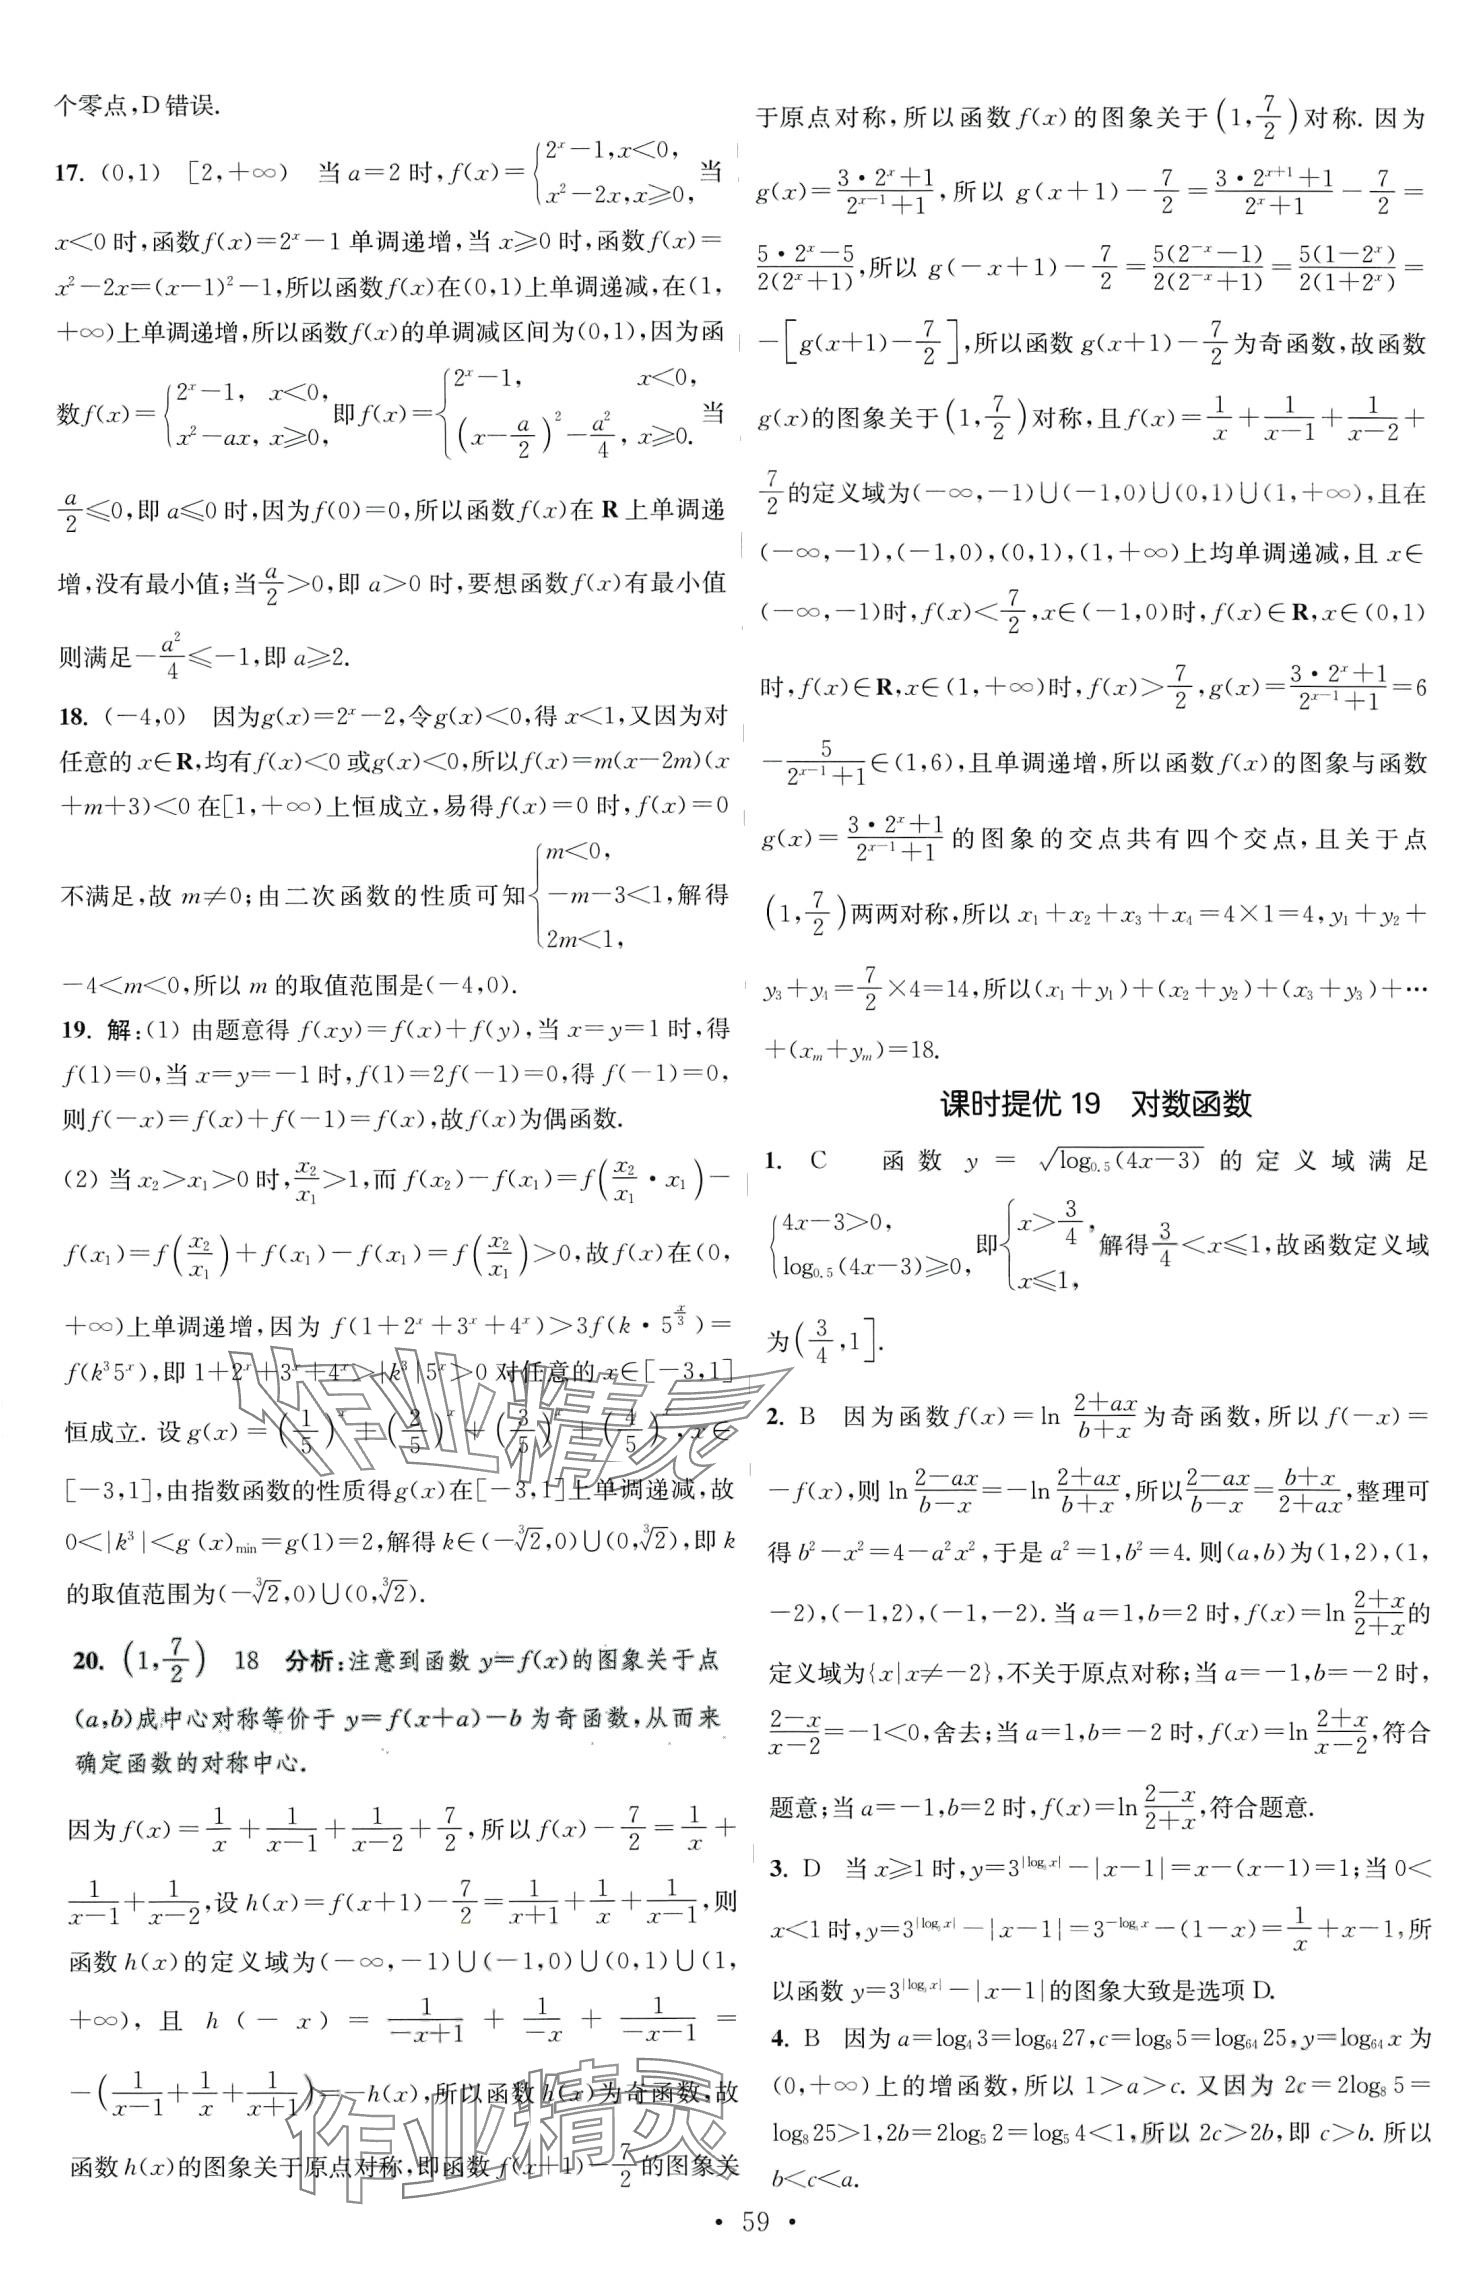 个零点,D错误.
17. (0,1) [2,+∞) 当a=2时,f(x)={2^x-1,x<0, x²-2x,x≥0, 当
x<0时,函数f(x)=2^x-1单调递增,当x≥0时,函数f(x)=
x²-2x=(x-1)²-1,所以函数f(x)在(0,1)上单调递减,在(1,
+∞)上单调递增,所以函数f(x)的单调减区间为(0,1),因为函
数f(x)={2^x-1, x<0, x²-ax, x≥0, 即f(x)={2^x-1, x<0, (x-a/2)²-a²/4, x≥0. 当
a/2≤0,即a≤0时,因为f(0)=0,所以函数f(x)在R上单调递
增,没有最小值;当a/2>0,即a>0时,要想函数f(x)有最小值
则满足-a²/4≤-1,即a≥2.
18. (-4,0) 因为g(x)=2^x-2,令g(x)<0,得x<1,又因为对
任意的x∈R,均有f(x)<0或g(x)<0,所以f(x)=m(x-2m)(x
+m+3)<0在[1,+∞)上恒成立,易得f(x)=0时,f(x)=0
不满足,故m≠0;由二次函数的性质可知{m<0, -m-3<1, 2m<1, 解得
-4<m<0,所以m的取值范围是(-4,0).
19. 解:(1) 由题意得f(xy)=f(x)+f(y),当x=y=1时,得
f(1)=0,当x=y=-1时,f(1)=2f(-1)=0,得f(-1)=0,
则f(-x)=f(x)+f(-1)=f(x),故f(x)为偶函数.
(2) 当x₂>x₁>0时,x₂/x₁>1,而f(x₂)-f(x₁)=f(x₂/x₁·x₁)-
f(x₁)=f(x₂/x₁)+f(x₁)-f(x₁)=f(x₂/x₁)>0,故f(x)在(0,
+∞)上单调递增,因为f(1+2^x+3^x+4^x)>3f(k·5^(x/3))=
f(k³5^x),即1+2^x+3^x+4^x>|k³|5^x>0对任意的x∈[-3,1]
恒成立. 设g(x)=(1/5)^x+(2/5)^x+(3/5)^x+(4/5)^x,x∈
[-3,1],由指数函数的性质得g(x)在[-3,1]上单调递减,故
0<|k³|<g(x)min=g(1)=2,解得k∈(-∛2,0)∪(0,∛2),即k
的取值范围为(-∛2,0)∪(0,∛2).
20. (1,7/2) 18 分析:注意到函数y=f(x)的图象关于点
(a,b)成中心对称等价于y=f(x+a)-b为奇函数,从而来
确定函数的对称中心.
因为f(x)=1/x+1/(x-1)+1/(x-2)+7/2,所以f(x)-7/2=1/x+
1/(x-1)+1/(x-2),设h(x)=f(x+1)-7/2=1/(x+1)+1/x+1/(x-1),则
函数h(x)的定义域为(-∞,-1)∪(-1,0)∪(0,1)∪(1,
+∞),且h(-x)=1/(-x+1)+1/(-x)+1/(-x-1)=
-(1/(x-1)+1/x+1/(x+1))=-h(x),所以函数h(x)为奇函数,故
函数h(x)的图象关于原点对称,即函数f(x+1)-7/2的图象关
于原点对称,所以函数f(x)的图象关于(1,7/2)对称. 因为
g(x)=(3·2^x+1)/(2^(x-1)+1),所以g(x+1)-7/2=(3·2^(x+1)+1)/(2^x+1)-7/2=
(5·2^x-5)/(2(2^x+1)),所以g(-x+1)-7/2=5(2^(-x)-1)/(2(2^(-x)+1))=5(1-2^x)/(2(1+2^x))=
-[g(x+1)-7/2],所以函数g(x+1)-7/2为奇函数,故函数
g(x)的图象关于(1,7/2)对称,且f(x)=1/x+1/(x-1)+1/(x-2)+
7/2的定义域为(-∞,-1)∪(-1,0)∪(0,1)∪(1,+∞),且在
(-∞,-1),(-1,0),(0,1),(1,+∞)上均单调递减,且x∈
(-∞,-1)时,f(x)<7/2,x∈(-1,0)时,f(x)∈R,x∈(0,1)
时,f(x)∈R,x∈(1,+∞)时,f(x)>7/2,g(x)=(3·2^x+1)/(2^(x-1)+1)=6
-5/(2^(x-1)+1)∈(1,6),且单调递增,所以函数f(x)的图象与函数
g(x)=(3·2^x+1)/(2^(x-1)+1)的图象的交点共有四个交点,且关于点
(1,7/2)两两对称,所以x₁+x₂+x₃+x₄=4×1=4,y₁+y₂+
y₃+y₄=7/2×4=14,所以(x₁+y₁)+(x₂+y₂)+(x₃+y₃)+…
+(xₘ+yₘ)=18.
课时提优19 对数函数
1. C 函数y=√(log₀.₅(4x-3))的定义域满足
{4x-3>0, log₀.₅(4x-3)≥0, 即{x>3/4, x≤1, 解得3/4<x≤1,故函数定义域
为(3/4,1].
2. B 因为函数f(x)=ln (2+ax)/(b+x)为奇函数,所以f(-x)=
-f(x),则ln (2-ax)/(b-x)=-ln (2+ax)/(b+x),所以(2-ax)/(b-x)=(b+x)/(2+ax),整理可
得b²-x²=4-a²x²,于是a²=1,b²=4. 则(a,b)为(1,2),(1,
-2),(-1,2),(-1,-2). 当a=1,b=2时,f(x)=ln (2+x)/(2+x)的
定义域为{x|x≠-2},不关于原点对称;当a=-1,b=-2时,
(2-x)/(x-2)=-1<0,舍去;当a=1,b=-2时,f(x)=ln (2+x)/(x-2),符合
题意;当a=-1,b=2时,f(x)=ln (2-x)/(2+x),符合题意.
3. D 当x≥1时,y=3^|log₃x|-|x-1|=x-(x-1)=1;当0<
x<1时,y=3^|log₃x|-|x-1|=3^(-log₃x)-(1-x)=1/x+x-1,所
以函数y=3^|log₃x|-|x-1|的图象大致是选项D.
4. B 因为a=log₄3=log₆₄27,c=log₈5=log₆₄25,y=log₆₄x为
(0,+∞)上的增函数,所以1>a>c. 又因为2c=2log₈5=
log₈25>1,2b=2log₅2=log₅4<1,所以2c>2b,即c>b. 所以
b<c<a.
作业精灵
作业精灵
· 59 ·